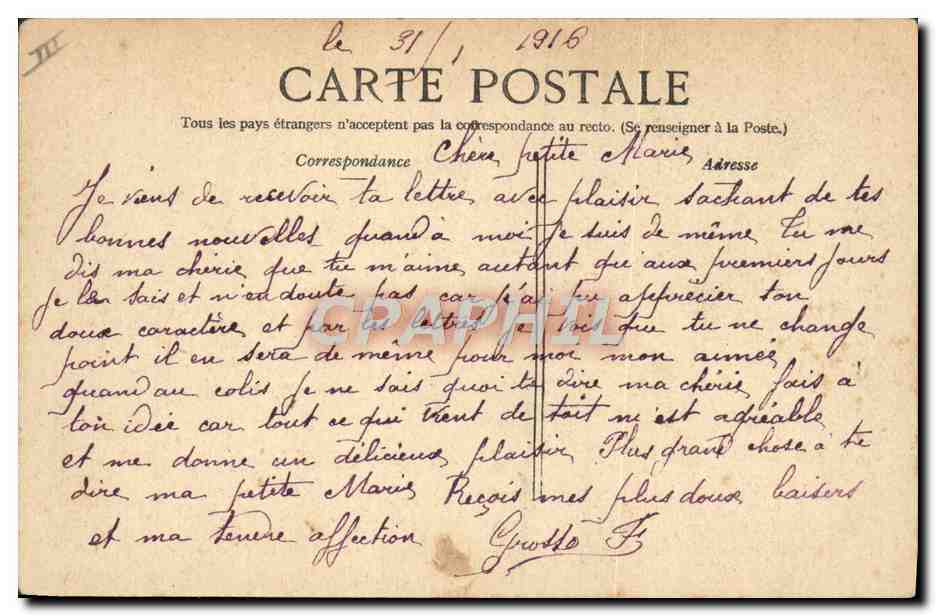 III
le 31/1 1916
CARTE POSTALE
Tous les pays étrangers n'acceptent pas la correspondance au recto. (Se renseigner à la Poste.)
Correspondance Chère petite Marie Adresse
Je viens de recevoir ta lettre avec plaisir sachant de tes
bonnes nouvelles quand à moi Je suis de même Tu me
dis ma chérie que tu m'aime autant qu'aux premiers jours
Je le sais et n'en doute pas car j'ai pu apprécier ton
doux caractère et par tes lettres Je vois que tu ne change
point il en sera de même pour moi mon aimée
quand au colis Je ne sais quoi te dire ma chérie fais à
ton idée car tout ce qui vient de toit m'est agréable
et me donne un délicieux plaisir Plus grand chose à te
dire ma petite Marie Reçois mes plus doux baisers
et ma tendre affection Grosso F
CPAPHIL